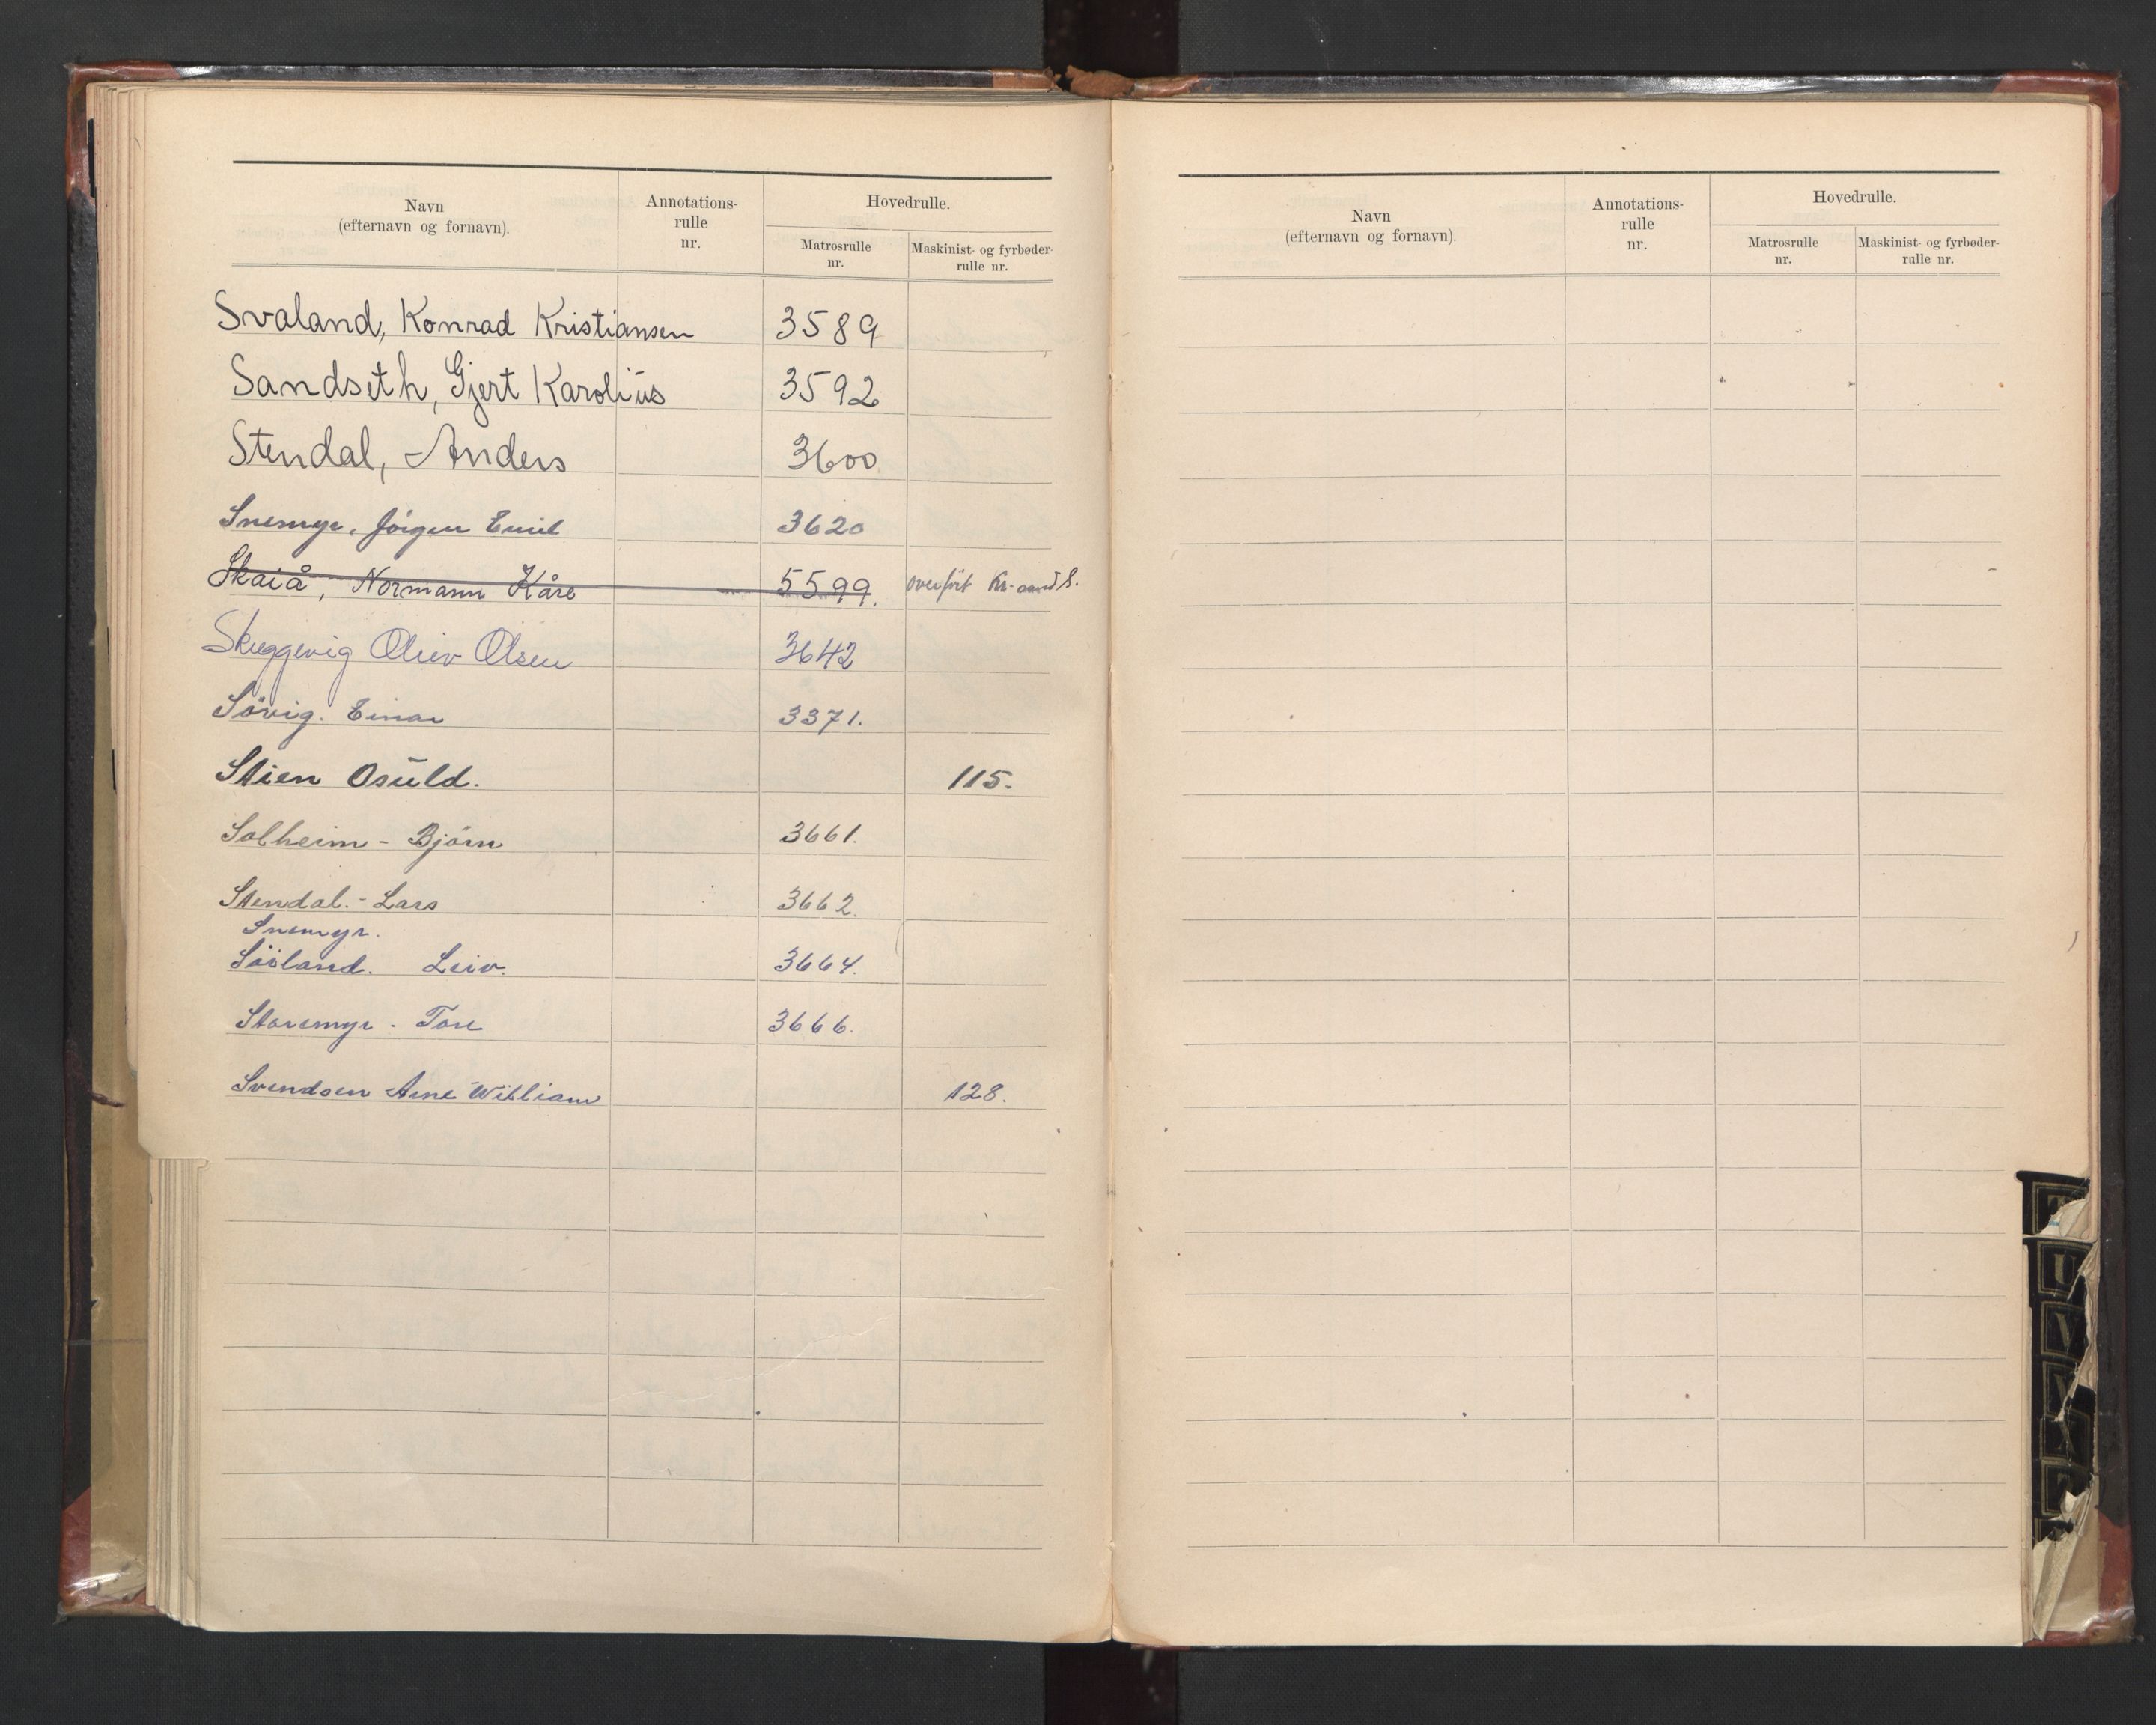 Navn
(efternavn og fornavn).
Annotations-
rulle
nr.
Hovedrulle.
Matrosrulle
nr.
Maskinist- og fyrbøder-
rulle nr.
Svaland, Konrad Kristiansen 3589
Sandseth, Gjert Karolius 3592
Stendal, Anders 3600
Snemyr, Jörgen Emil 3620
Skaiå, Normann Kåre 5599. overfört Kr.sand S.
Skuggevig Oliev Olsen 3642
Sövig. Einar 3371.
Stien Osuld. 115.
Solheim - Björn 3661.
Stendal. - Lars 3662.
Snemyr.
Sövland. Leiv. 3664.
Staremyr. Tore 3666.
Svendsen Arne William 128.
Navn
(efternavn og fornavn).
Annotations-
rulle
nr.
Hovedrulle.
Matrosrulle
nr.
Maskinist- og fyrbøder-
rulle nr.
T
U
V